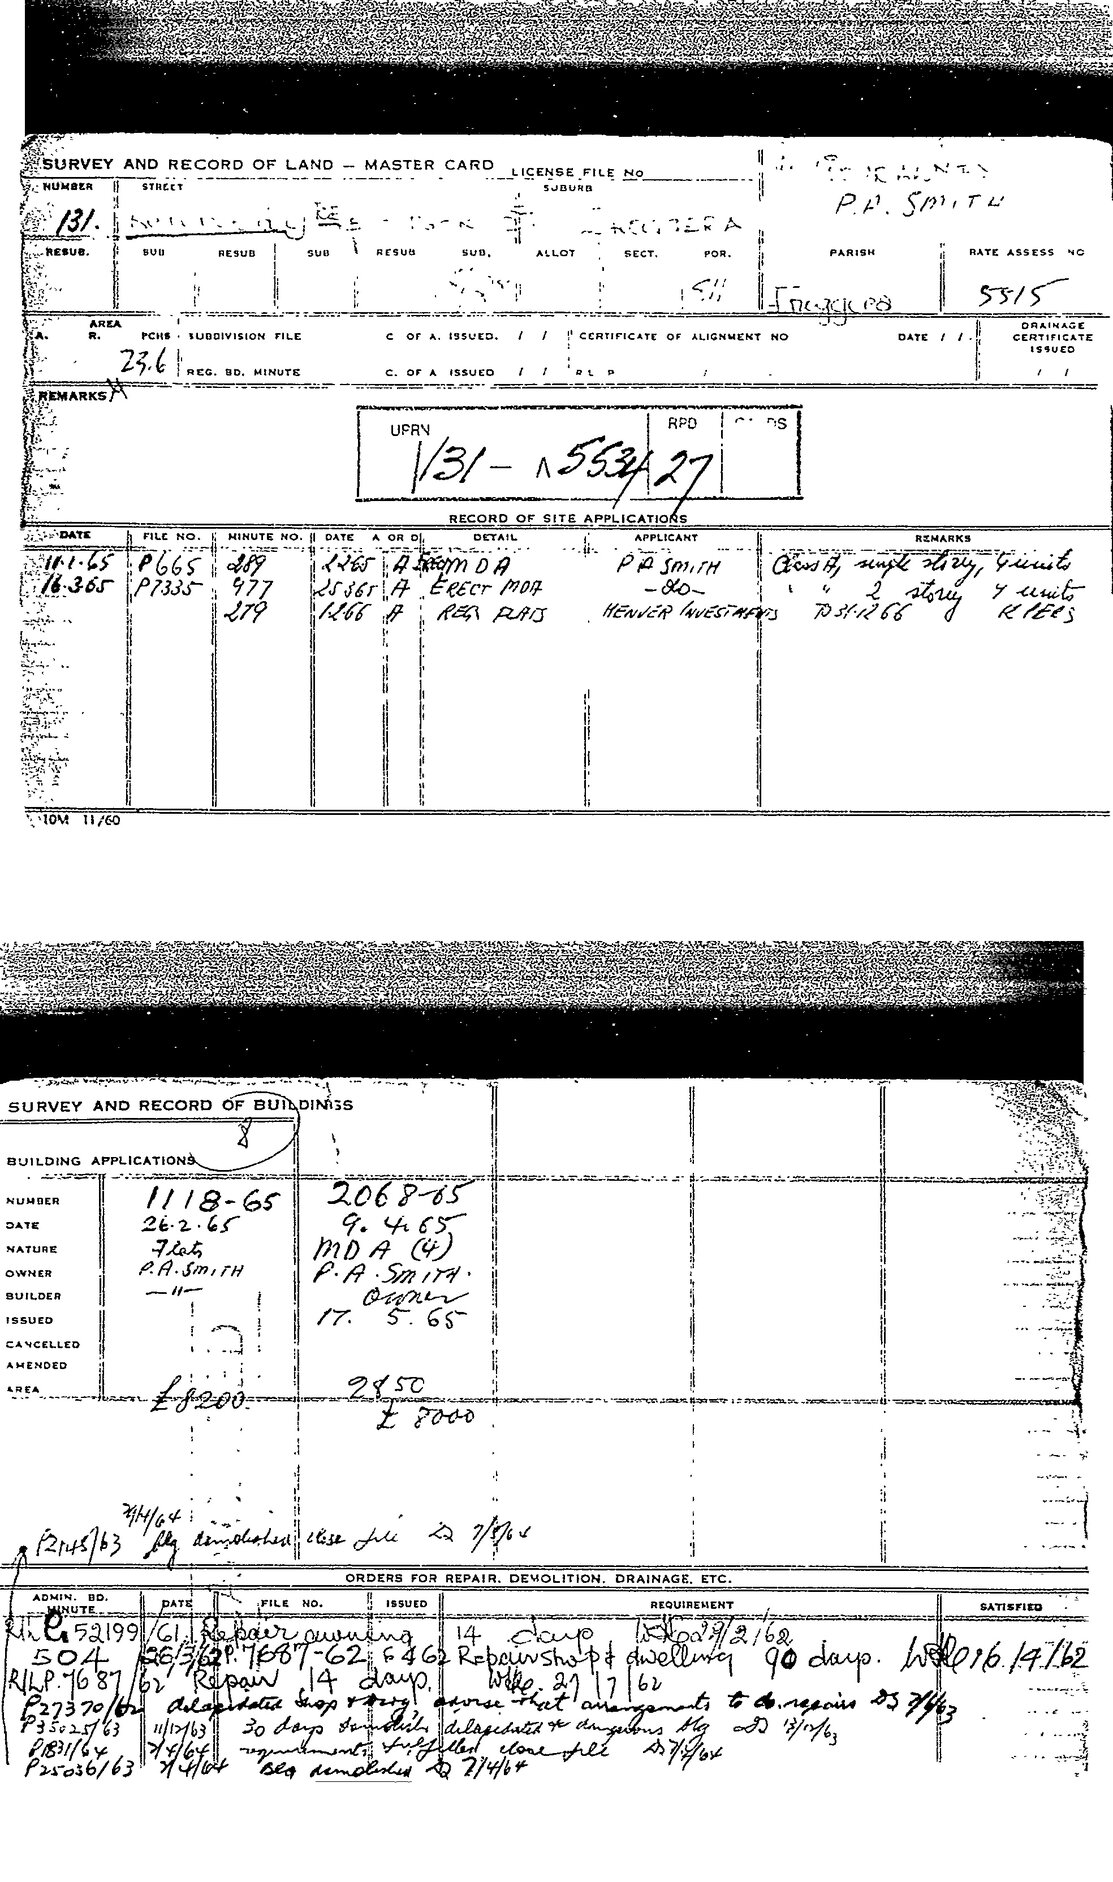 SURVEY AND RECORD OF LAND – MASTER CARD LICENSE FILE NO
P.A. SMITH
NUMBER STREET SUBURB
131.
RESUB. SUB RESUB SUB RESUB SUB. ALLOT SECT. POR. PARISH RATE ASSESS NO
511 Enoggera 5515
A. AREA R. PCHS SUBDIVISION FILE C OF A. ISSUED. / / CERTIFICATE OF ALIGNMENT NO DATE / / DRAINAGE CERTIFICATE ISSUED
23.6 REG. BD. MINUTE C. OF A ISSUED / / R L P / / /
REMARKS
UPRN RPD
131 – 5534 27
RECORD OF SITE APPLICATIONS
DATE FILE NO. MINUTE NO. DATE A OR D DETAIL APPLICANT REMARKS
11.1.65 P665 289 2265 A MDA P A SMITH Class A, single storey, 4 units
16.3.65 P7335 977 25365 A ERECT MDA –do– " " 2 storey 4 units
279 1266 A REG FLATS HENVER INVESTMENTS TO 31.12.66
10M 11/60
SURVEY AND RECORD OF BUILDINGS
8
BUILDING APPLICATIONS
NUMBER 1118-65 2068-65
DATE 26.2.65 9.4.65
NATURE Flats MDA (4)
OWNER P.A. SMITH P.A. SMITH.
BUILDER –"– Owner
ISSUED 17. 5. 65
CANCELLED
AMENDED
AREA £8200 2850
£ 8000
P2145/63 Blg demolished close file 7/5/64
ORDERS FOR REPAIR, DEMOLITION, DRAINAGE, ETC.
ADMIN. BD. MINUTE DATE FILE NO. ISSUED REQUIREMENT SATISFIED
52199 /61 Repair awning 14 days 2/62
504 26/3/62 P.7687-62 6462 Repair shop & dwelling 90 days. 16/4/62
R/LP.7687/62 Repair 14 days. 27/7/62
P27370/62 delapidated shop & arrangements to do repairs
P35025/63 11/12/63 30 days demolish delapidated & dangerous blg 13/12/63
P1831/64 7/4/64 requirements fulfilled close file 7/4/64
P25036/63 7/4/64 Blg demolished 7/4/64